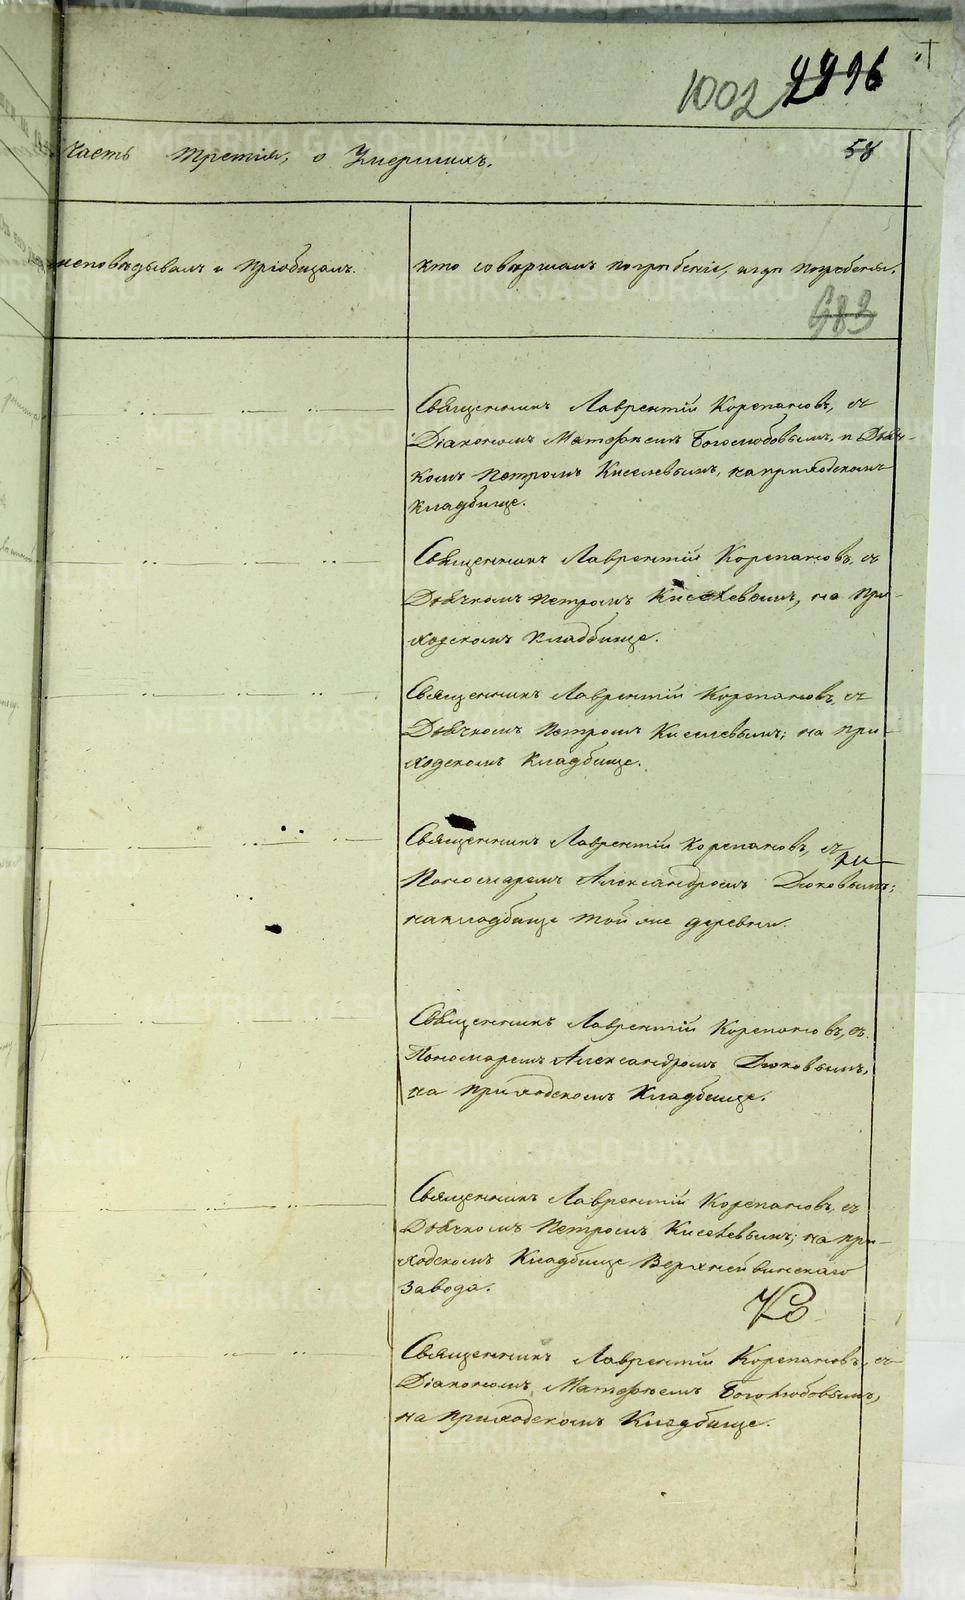 1002 2296
Часть третія, о Умершихъ.
58
исповѣдывалъ и пріобщалъ.
Кто совершалъ погребеніе, и гдѣ погребены.
483
Священникъ Лаврентій Корепановъ, съ
Діакономъ Матѳѣемъ Боголюбовымъ, и Дьяч-
комъ Петромъ Киселевымъ, на приходскомъ
кладбище.
Священникъ Лаврентій Корепановъ, съ
Дьячкомъ Петромъ Киселевымъ, на При-
ходскомъ кладбище.
Священникъ Лаврентій Корепановъ, съ
Дьячкомъ Петромъ Киселевымъ; на При-
ходскомъ Кладбище.
Священникъ Лаврентій Корепановъ, съ
Пономаремъ Александромъ Дюковымъ;
на кладбище той же деревни.
Священникъ Лаврентій Корепановъ, съ
Пономаремъ Александромъ Дюковымъ,
на Приходскомъ Кладбище.
Священникъ Лаврентій Корепановъ, съ
Дьячкомъ Петромъ Киселевымъ; на при-
ходскомъ Кладбище Верхнейвинскаго
Завода.
Священникъ Лаврентій Корепановъ, съ
Діакономъ Матѳѣемъ Боголюбовымъ,
на Приходскомъ Кладбище.
METRIKI.GASO-URAL.RU